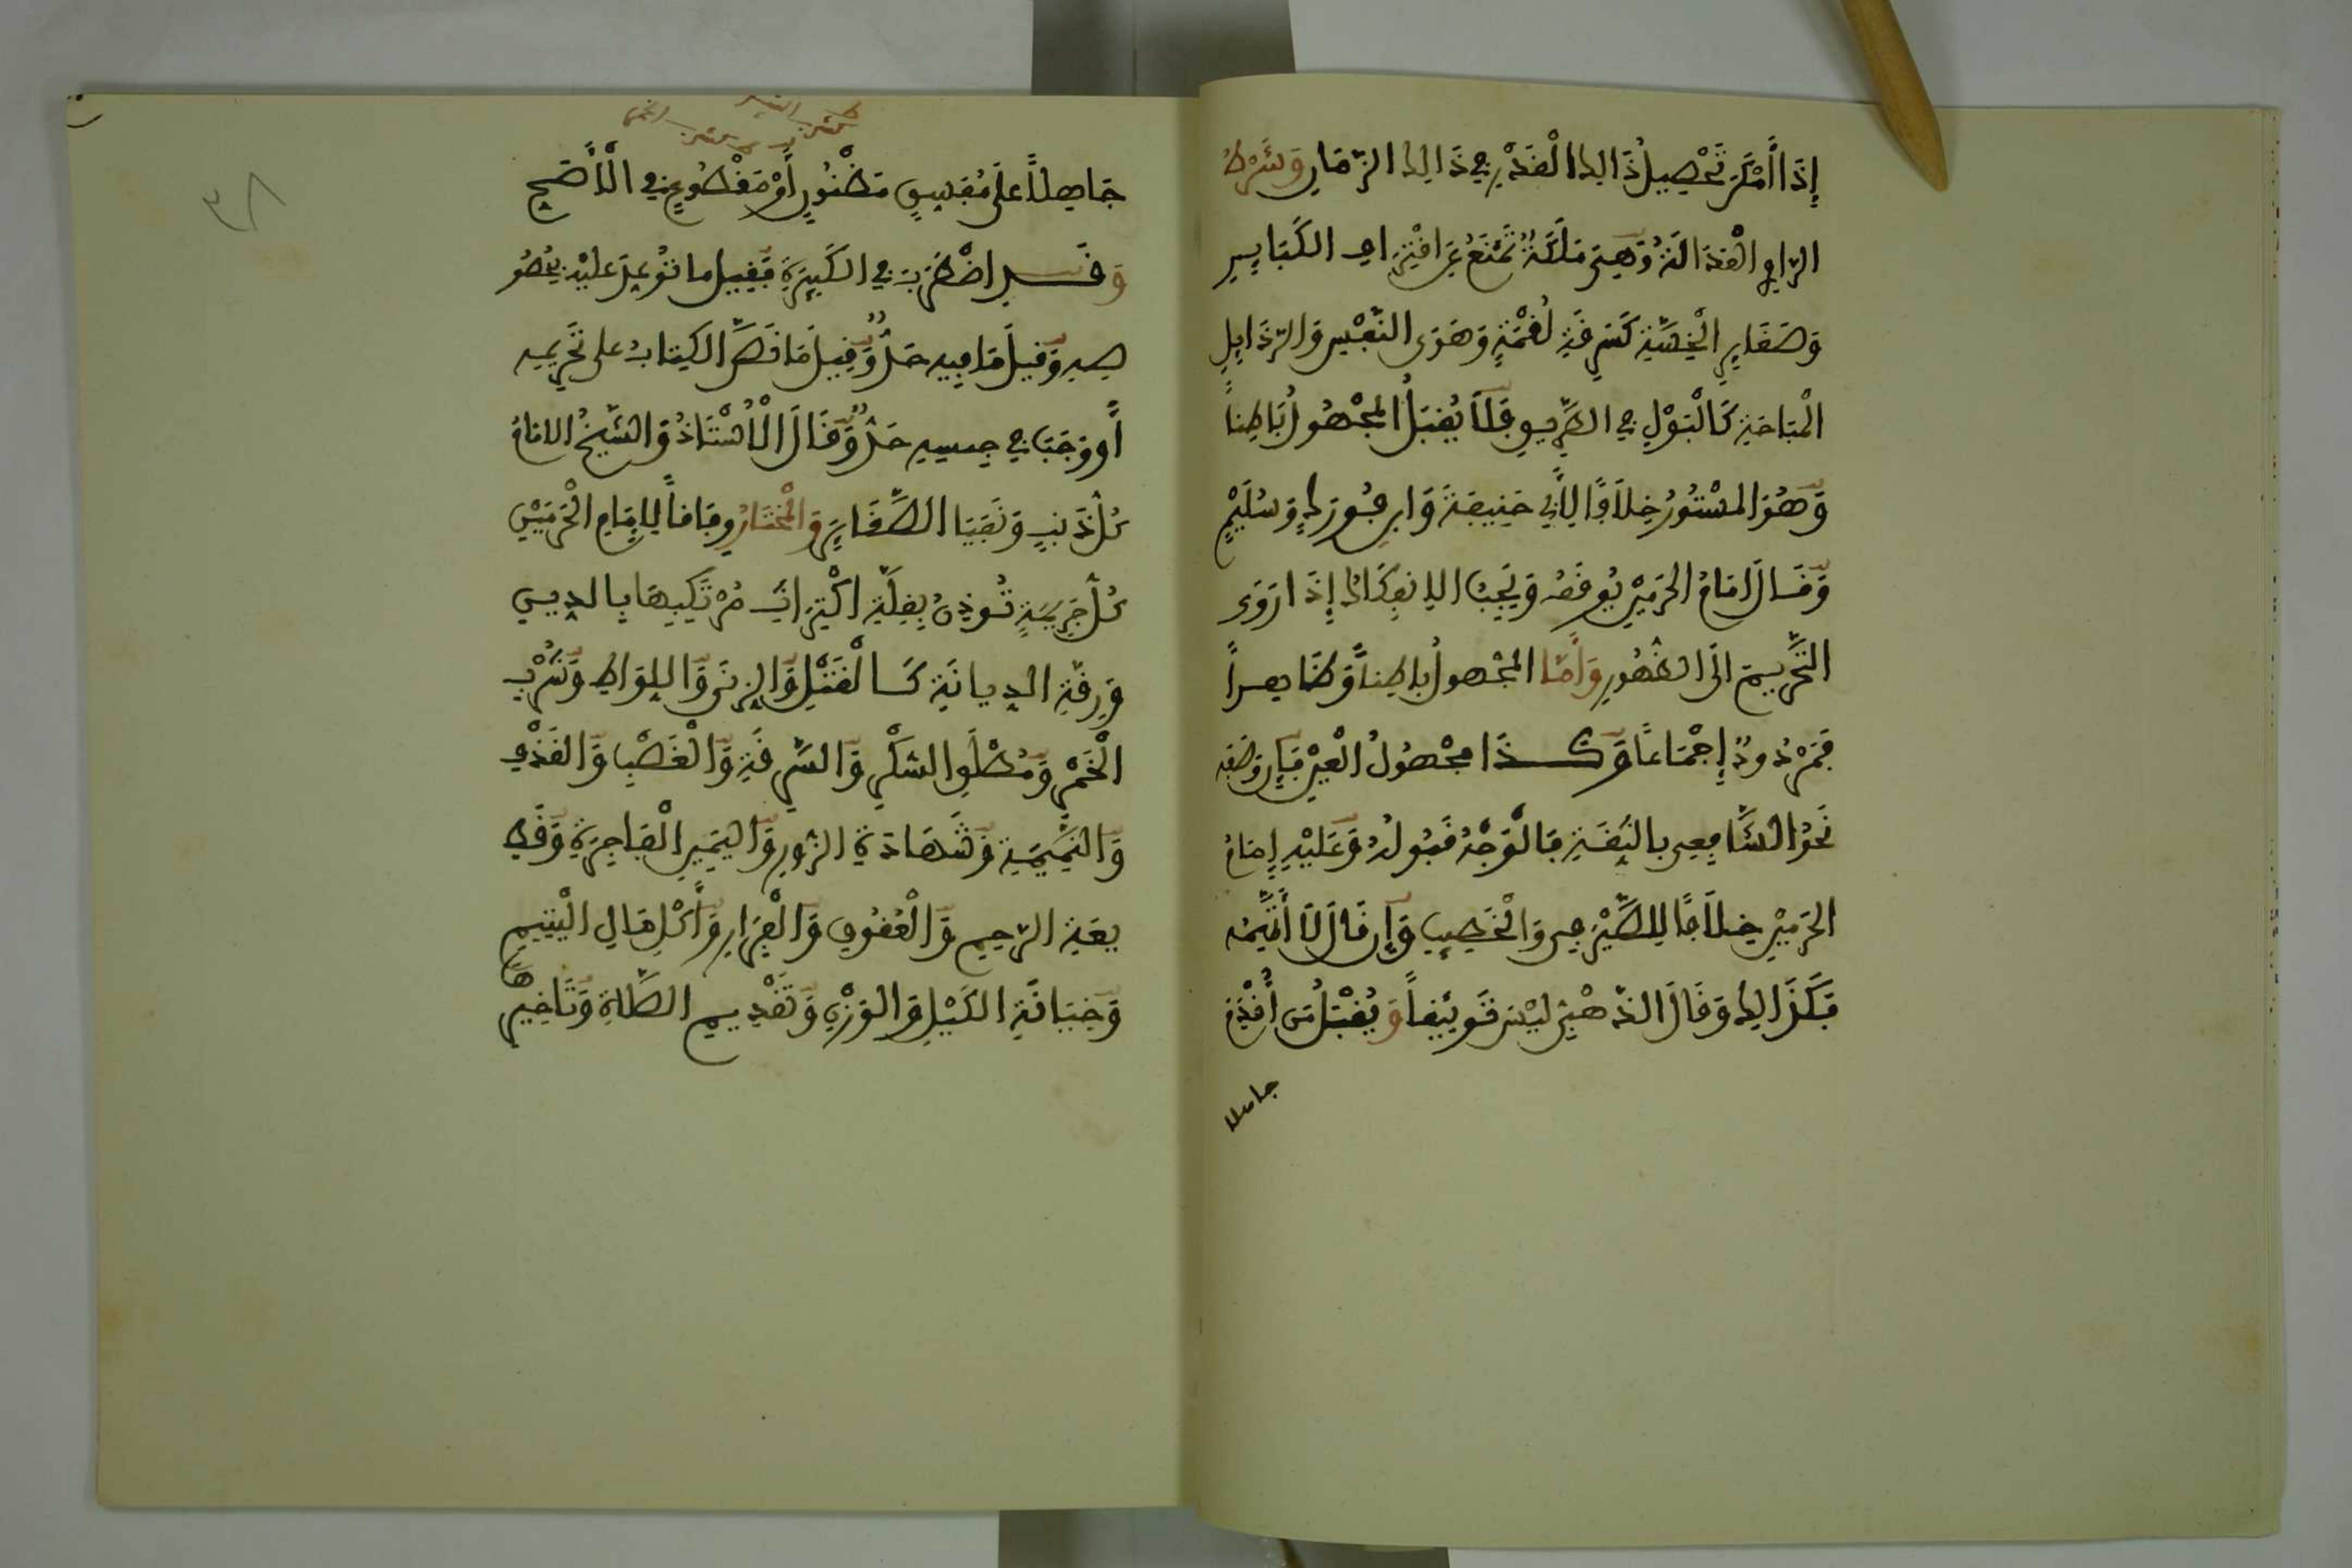 إِذَا أَمْكَنَ تَحْصِيلُ ذَالِكَ الْقَدْرِ فِي ذَالِكَ الزَّمَانِ وَشَرْطُ
الرَّاوِي الْعَدَالَةُ وَهِيَ مَلَكَةٌ تَمْنَعُ عَنِ اقْتِرَافِ الكَبَايِرِ
وَصَغَايِرِ الْخِسَّةِ كَسَرِقَةِ لُقْمَةٍ وَهَوَى النَّفْسِ وَالرَّذَايِلِ
الْمُبَاحَةِ كَالْبَوْلِ فِي الطَّرِيقِ فَلَا يُقْبَلُ الْمَجْهُولُ بَاطِناً
وَهُوَ المَسْتُورُ خِلَافًا لِأَبِي حَنِيفَةَ وَابْنِ فُورَكٍ وَسُلَيْمٍ
وَقَالَ إِمَامُ الحَرَمَيْنِ يُوقَفُ وَيَجِبُ الِانْكِفَافُ إِذَا رَوَى
التَّحْرِيمَ الَى الظُّهُورِ وَأَمَّا الْمَجْهُولُ بَاطِناً وَظَاهِراً
فَمَرْدُودٌ إِجْمَاعًا وَكَذَا مَجْهُولُ الْعَيْنِ فَإِنْ وَصَفَهُ
نَحْوُ الشَّافِعِي بِالثِّقَةِ فَالْوَجْهُ قَبُولُهُ وَعَلَيْهِ إِمَامُ
الحَرَمَيْنِ خِلَافًا لِلصَّيْرَفِي وَالْخَطِيبِ وَإِنْ قَالَ لَا أَتَّهِمُهُ
فَكَذَالِكَ وَقَالَ الذَّهَبِي لَيْسَ تَوْثِيقاً وَيُقْبَلُ مَنْ أَقْدَمَ
جاهلا
جَاهِلاً عَلَى مُفَسِّقٍ مَظْنُونٍ أَوْ مَقْطُوعٍ فِي الْأَصَحِّ
وَقَدِ اضْطُرِبَ فِي الكَبِيرَةِ فَقِيلَ مَا تُوُعِّدَ عَلَيْهِ بِخُصُو
صِهِ وَقِيلَ مَا فِيهِ حَدٌّ وَقِيلَ مَا نَصَّ الكِتَابُ عَلَى تَحْرِيمِهِ
أَو وَجَبَ فِي جِنْسِهِ حَدٌّ وَقَالَ الْأُسْتَاذُ وَالشَّيْخُ الإمَامُ
كُلُّ ذَنْبٍ وَنَفَيَا الصَّغَايِرَ وَالْمُخْتَارُ وِفَاقاً لِإِمَامِ الْحَرَمَيْنِ
كُلُّ جَرِيمَةٍ تُوذِنُ بِقِلَّةِ اكْتِرَاثِ مُرْتَكِبِهَا بِالدِّينِ
وَرِقَّةِ الدِّيَانَةِ كَالْقَتْلِ وَالزِّنَى وَاللِّوَاطِ وَشُرْبِ
الْخَمْرِ وَمُطْلَقِ السُّكْرِ وَالسَّرِقَةِ وَالْغَصْبِ وَالقَذْفِ
وَالنَّمِيمَةِ وَشَهَادَةِ الزُّورِ وَاليَمِينِ الْفَاجِرَةِ وَقَطِ
يعَةِ الرَّحِمِ وَالْعُقُوقِ وَالْفِرَارِ وَأَكْلِ مَالِ الْيَتِيمِ
وَخِيَانَةِ الكَيْلِ وَالوَزْنِ وَتَقْدِيمِ الصَّلَاةِ وَتَأْخِيرِهَا